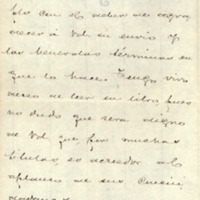 con el deber de agra-
decer á Vd. su envio y
los benévolos términos en
que lo hace. Tengo vivo
deseo de leer su libro, pues
no dudo que será digno
de Vd. que por muchos
títulos, es acreedor al
aplauso de sus